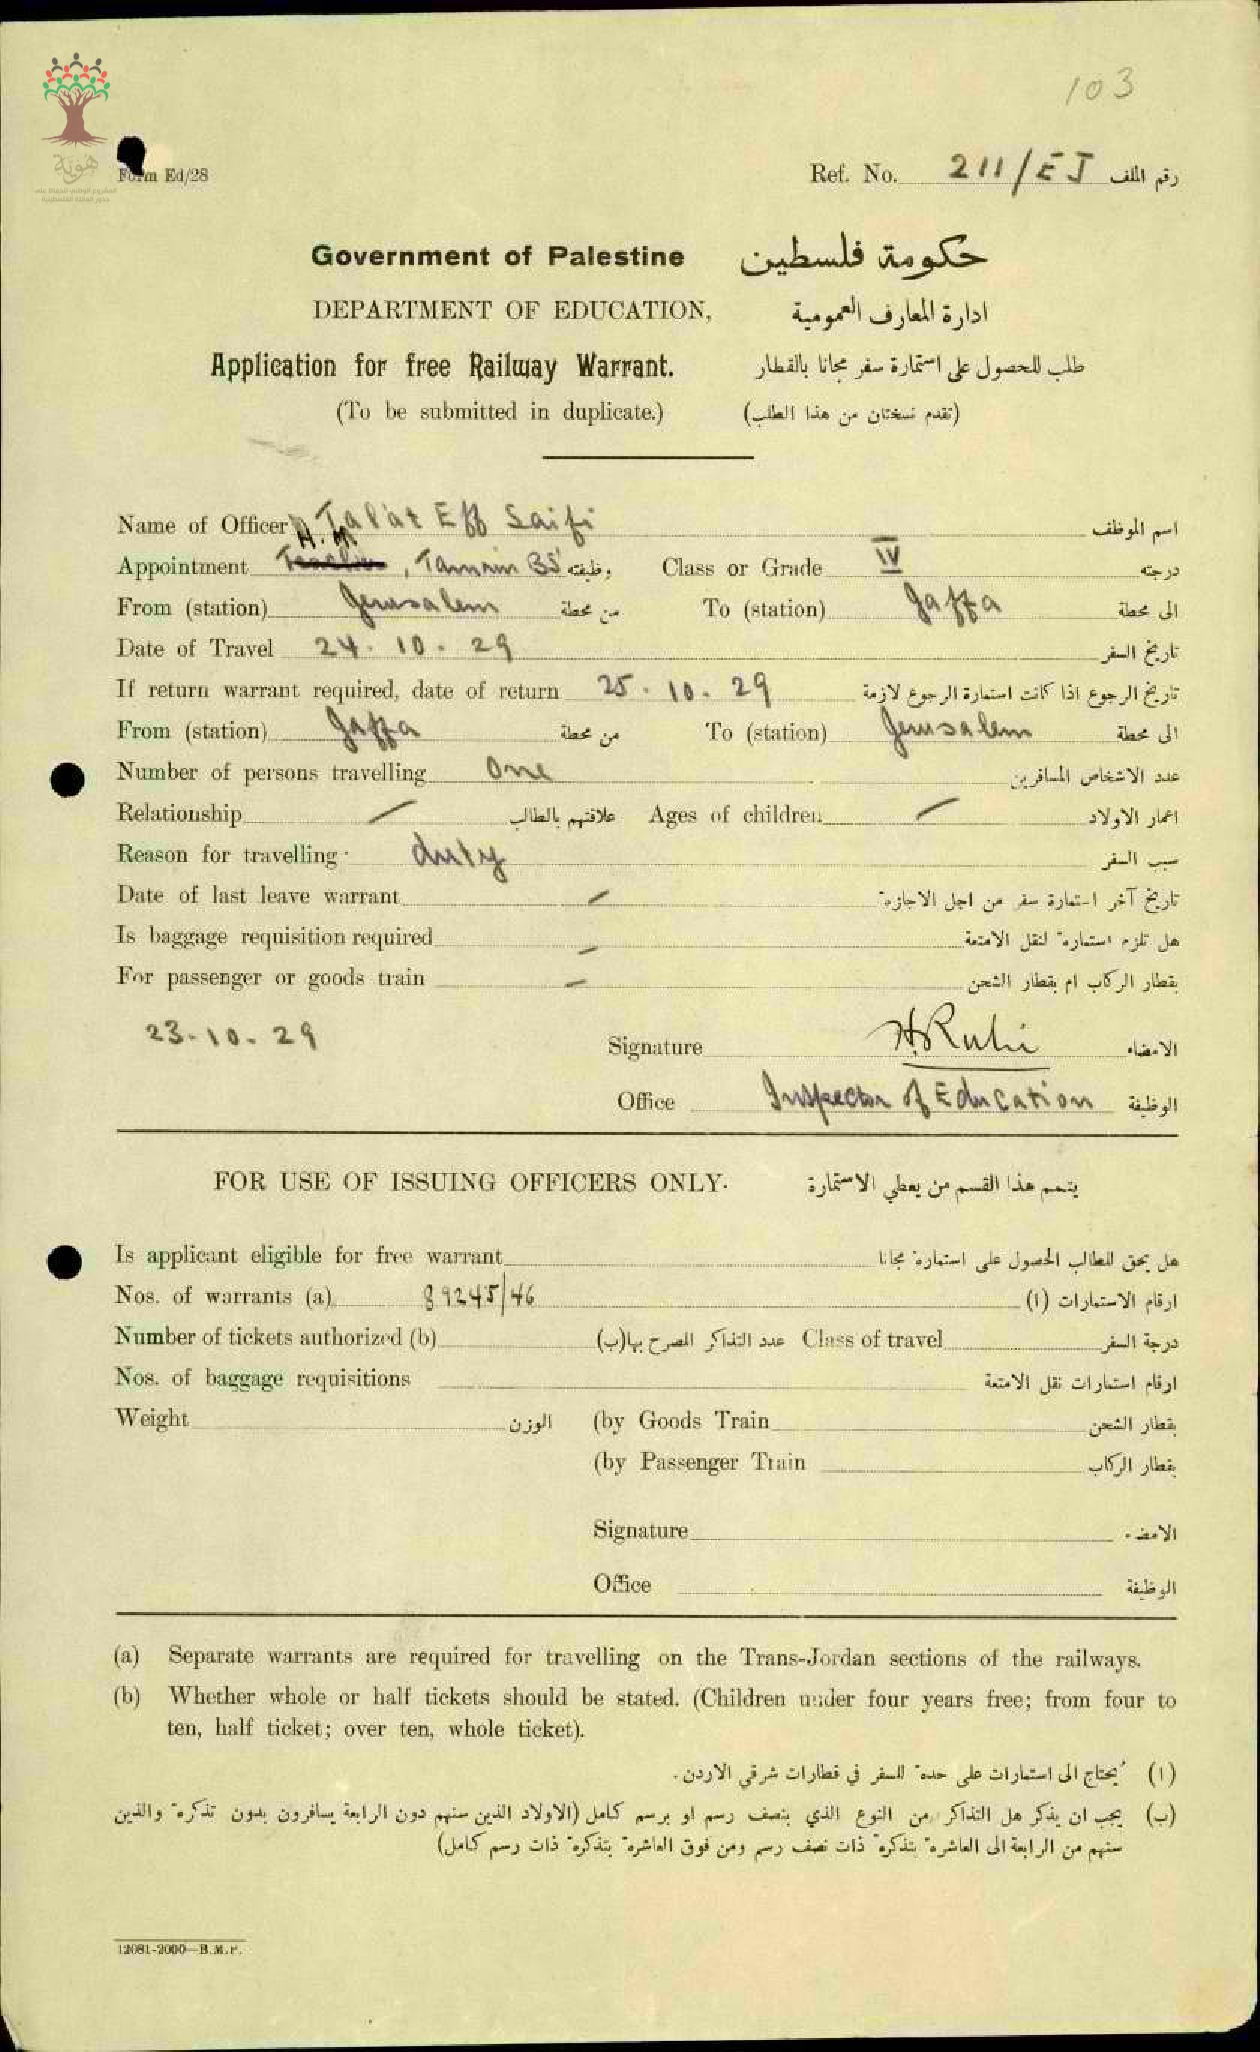 103
هوية
المشروع الوطني للحفاظ على
جذور العائلة الفلسطينية
Form Ed/28
Ref. No. 211/EJ رقم الملف
Government of Palestine حكومة فلسطين
DEPARTMENT OF EDUCATION, ادارة المعارف العمومية
Application for free Railway Warrant. طلب للحصول على استمارة سفر مجانا بالقطار
(To be submitted in duplicate.) (تقدم نسختان من هذا الطلب)
Name of Officer Talat Eff Saifi اسم الموظف
H.M
Appointment Teacher, Tamrin BS وظيفته Class or Grade IV درجته
From (station) Jerusalem من محطة To (station) Jaffa الى محطة
Date of Travel 24. 10. 29 تاريخ السفر
If return warrant required, date of return 25. 10. 29 تاريخ الرجوع اذا كانت استمارة الرجوع لازمة
From (station) Jaffa من محطة To (station) Jerusalem الى محطة
Number of persons travelling One عدد الاشخاص المسافرين
Relationship علاقتهم بالطالب Ages of children اعمار الاولاد
Reason for travelling duty سبب السفر
Date of last leave warrant تاريخ آخر استمارة سفر من اجل الاجازة
Is baggage requisition required هل تلزم استمارة لنقل الامتعة
For passenger or goods train بقطار الركاب ام بقطار الشحن
23.10.29
Signature H. Ruhi الامضاء
Office Inspector of Education الوظيفة
FOR USE OF ISSUING OFFICERS ONLY. يتمم هذا القسم من يعطي الاستمارة
Is applicant eligible for free warrant هل يحق للطالب الحصول على استمارة مجانا
Nos. of warrants (a) 89245/46 ارقام الاستمارات (ا)
Number of tickets authorized (b) عدد التذاكر المصرح بها(ب) Class of travel درجة السفر
Nos. of baggage requisitions ارقام استمارات نقل الامتعة
Weight الوزن (by Goods Train بقطار الشحن
(by Passenger Train بقطار الركاب
Signature الامضاء
Office الوظيفة
(a) Separate warrants are required for travelling on the Trans-Jordan sections of the railways.
(b) Whether whole or half tickets should be stated. (Children under four years free; from four to
ten, half ticket; over ten, whole ticket).
(ا) يحتاج الى استمارات على حدة للسفر في قطارات شرقي الاردن.
(ب) يجب ان يذكر هل التذاكر من النوع الذي بنصف رسم او برسم كامل (الاولاد الذين سنهم دون الرابعة يسافرون بدون تذكرة والذين
سنهم من الرابعة الى العاشرة بتذكرة ذات نصف رسم ومن فوق العاشرة بتذكرة ذات رسم كامل)
12081-2000—B.M.P.